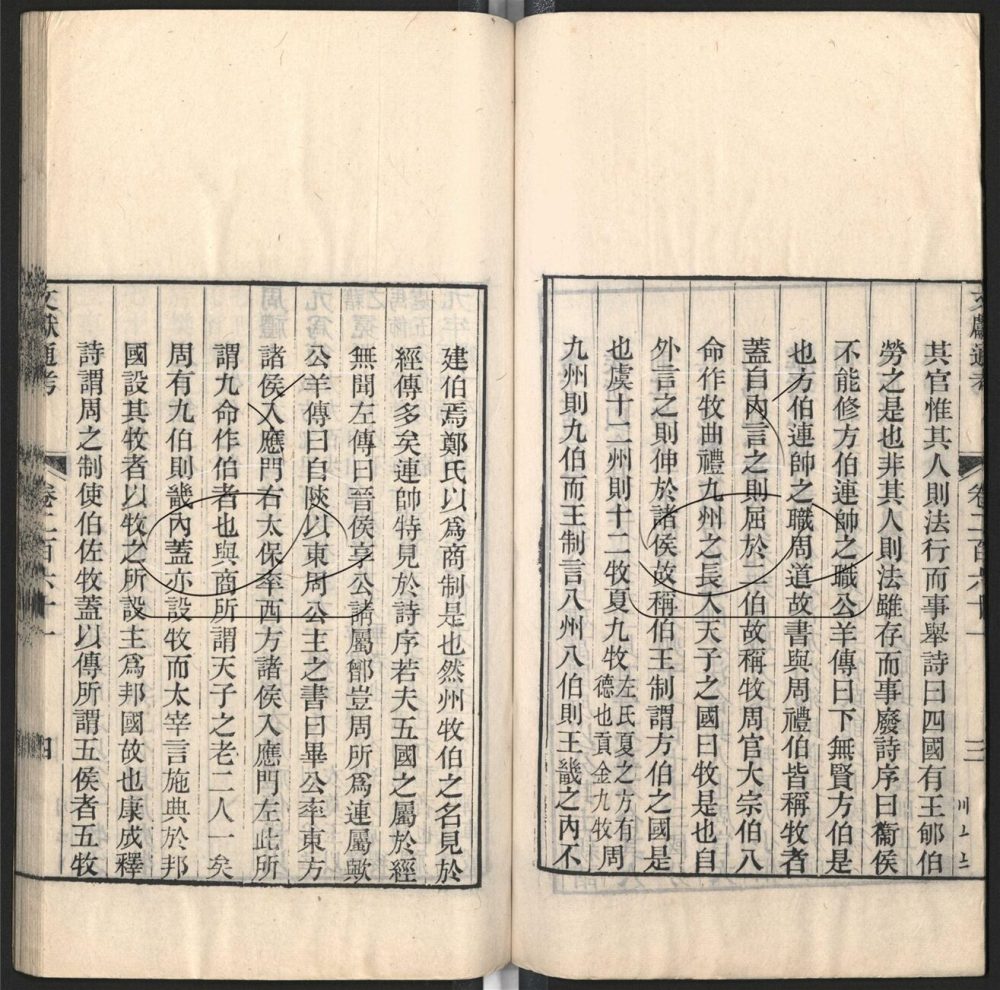 其官惟其人則法行而事舉詩曰四國有王郇伯
勞之是也非其人則法雖存而事廢詩序曰衞侯
不能修方伯連帥之職公羊傳曰下無賢方伯是
也方伯連帥之職周道故書與周禮伯皆稱牧者
蓋自內言之則屈於二伯故稱牧周官大宗伯八
命作牧曲禮九州之長入天子之國曰牧是也自
外言之則伸於諸侯故稱伯王制謂方伯之國是
也虞十二州則十二牧夏九牧左氏夏之方有德也貢金九牧周
九州則九伯而王制言八州八伯則王畿之內不
文獻通考
卷二百六十一
三
建伯焉鄭氏以爲商制是也然州牧伯之名見於
經傳多矣連帥特見於詩序若夫五國之屬於經
無聞左傳曰晉侯享公請屬鄫豈周所爲連屬歟
公羊傳曰自陝以東周公主之書曰畢公率東方
諸侯入應門右太保率西方諸侯入應門左此所
謂九命作伯者也與商所謂天子之老二人一矣
周有九伯則畿內蓋亦設牧而太宰言施典於邦
國設其牧者以牧之所設主爲邦國故也康成釋
詩謂周之制使伯佐牧蓋以傳所謂五侯者五牧
文獻通考
卷二百六十一
四